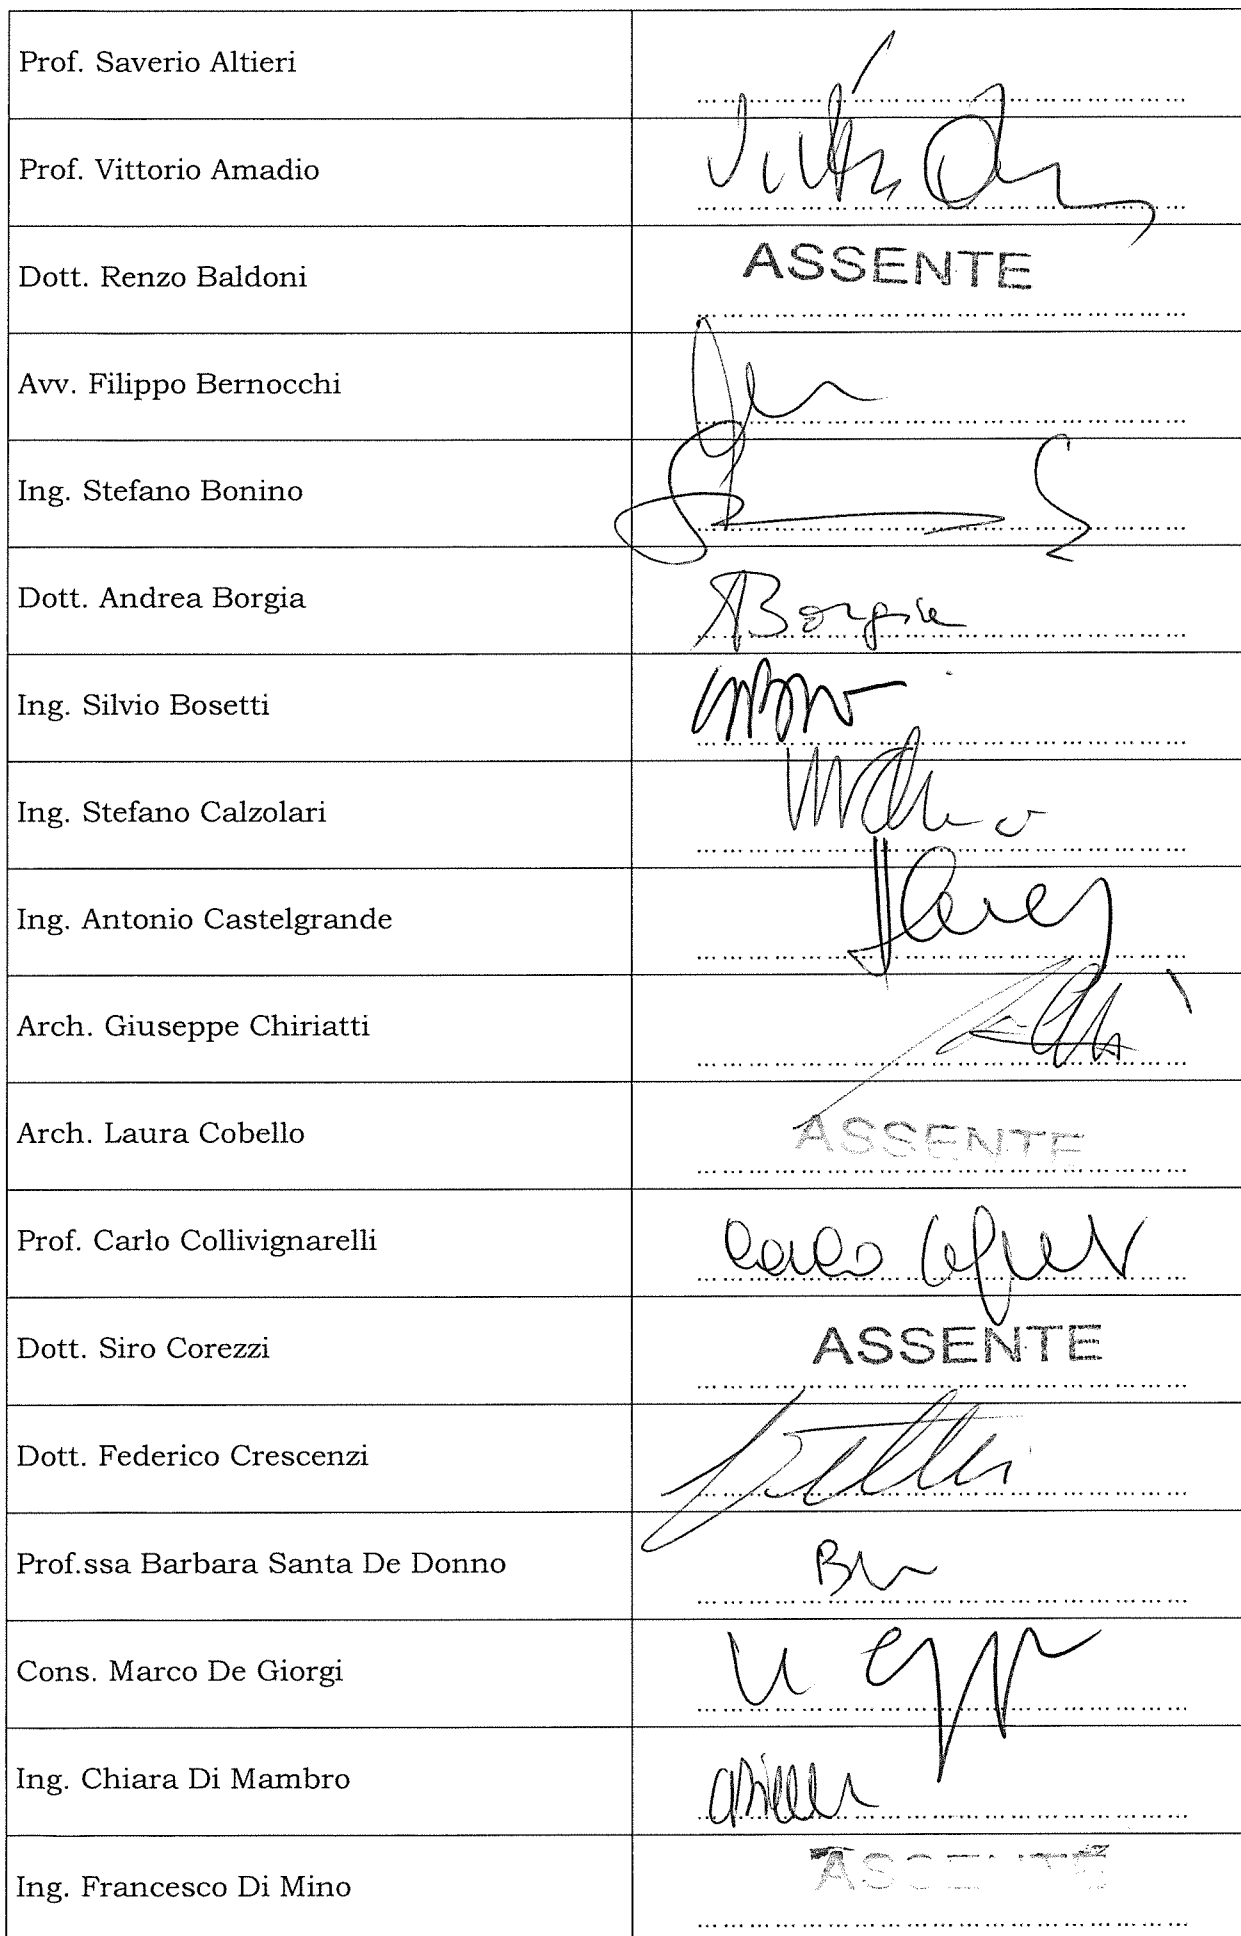 Prof. Saverio Altieri
Prof. Vittorio Amadio
Dott. Renzo Baldoni
ASSENTE
Avv. Filippo Bernocchi
Ing. Stefano Bonino
Dott. Andrea Borgia
ABorgia
Ing. Silvio Bosetti
Ing. Stefano Calzolari
Ing. Antonio Castelgrande
Arch. Giuseppe Chiriatti
Arch. Laura Cobello
ASSENTE
Prof. Carlo Collivignarelli
Carlo
Dott. Siro Corezzi
ASSENTE
Dott. Federico Crescenzi
Prof.ssa Barbara Santa De Donno
Cons. Marco De Giorgi
Ing. Chiara Di Mambro
Ing. Francesco Di Mino
ASSENTE